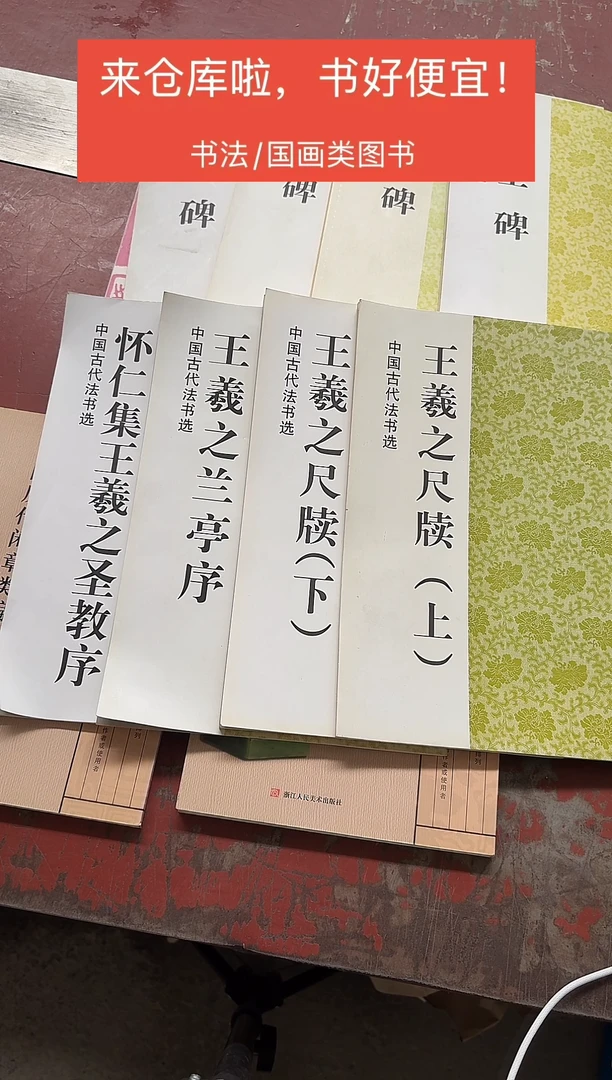 来仓库啦，书好便宜！
书法/国画类图书
碑
碑
碑
碑
怀仁集王羲之圣教序
中国古代法书选
王羲之兰亭序
中国古代法书选
王羲之尺牍（下）
中国古代法书选
王羲之尺牍（上）
中国古代法书选
作者或使用者
浙江人民美术出版社
作者或使用者